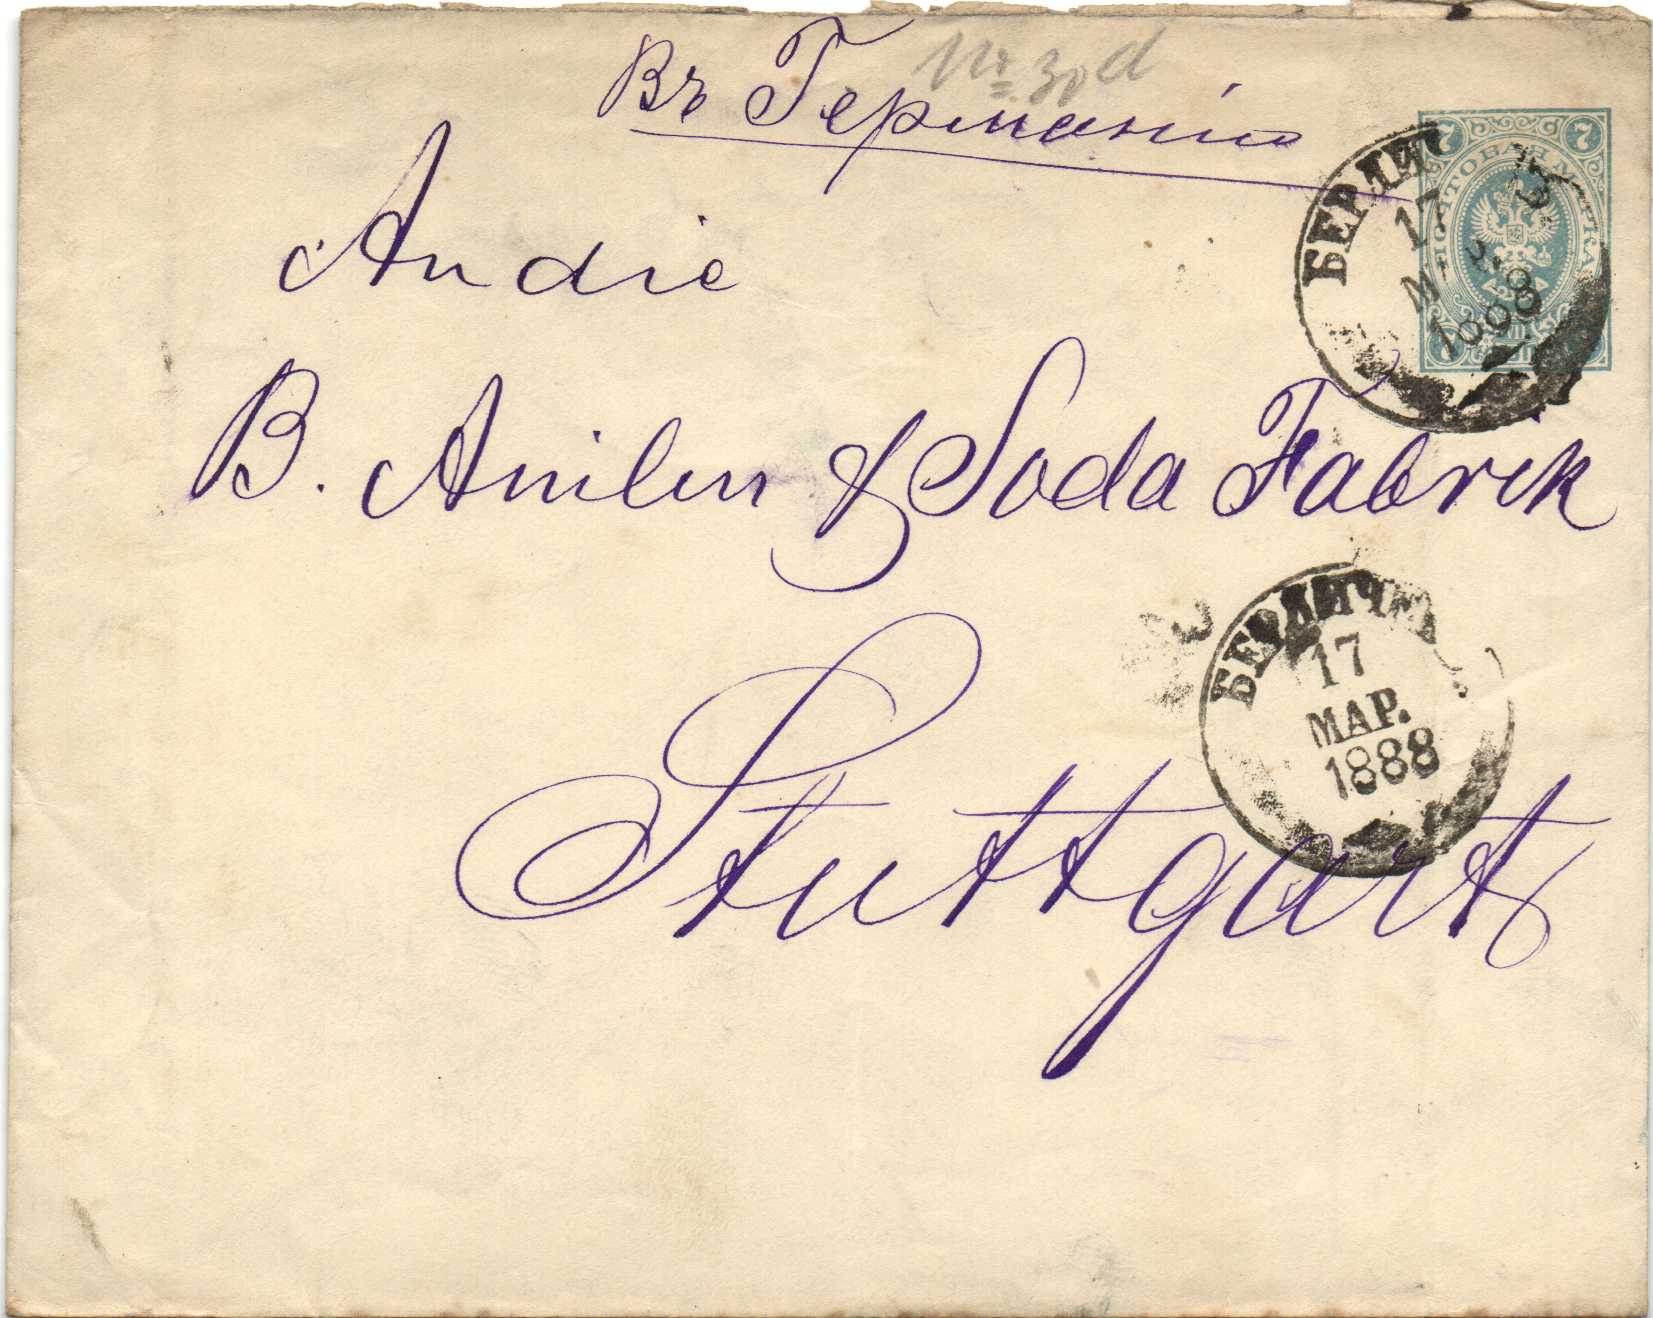 Въ Германію
An die
B. Anilin & Soda Fabrik
Stuttgart
7 7
ПОЧТОВАЯ МАРКА
7 7
БЕРДИЧ
17
МАР.
1888
БЕРДИЧЕВ
17
МАР.
1888